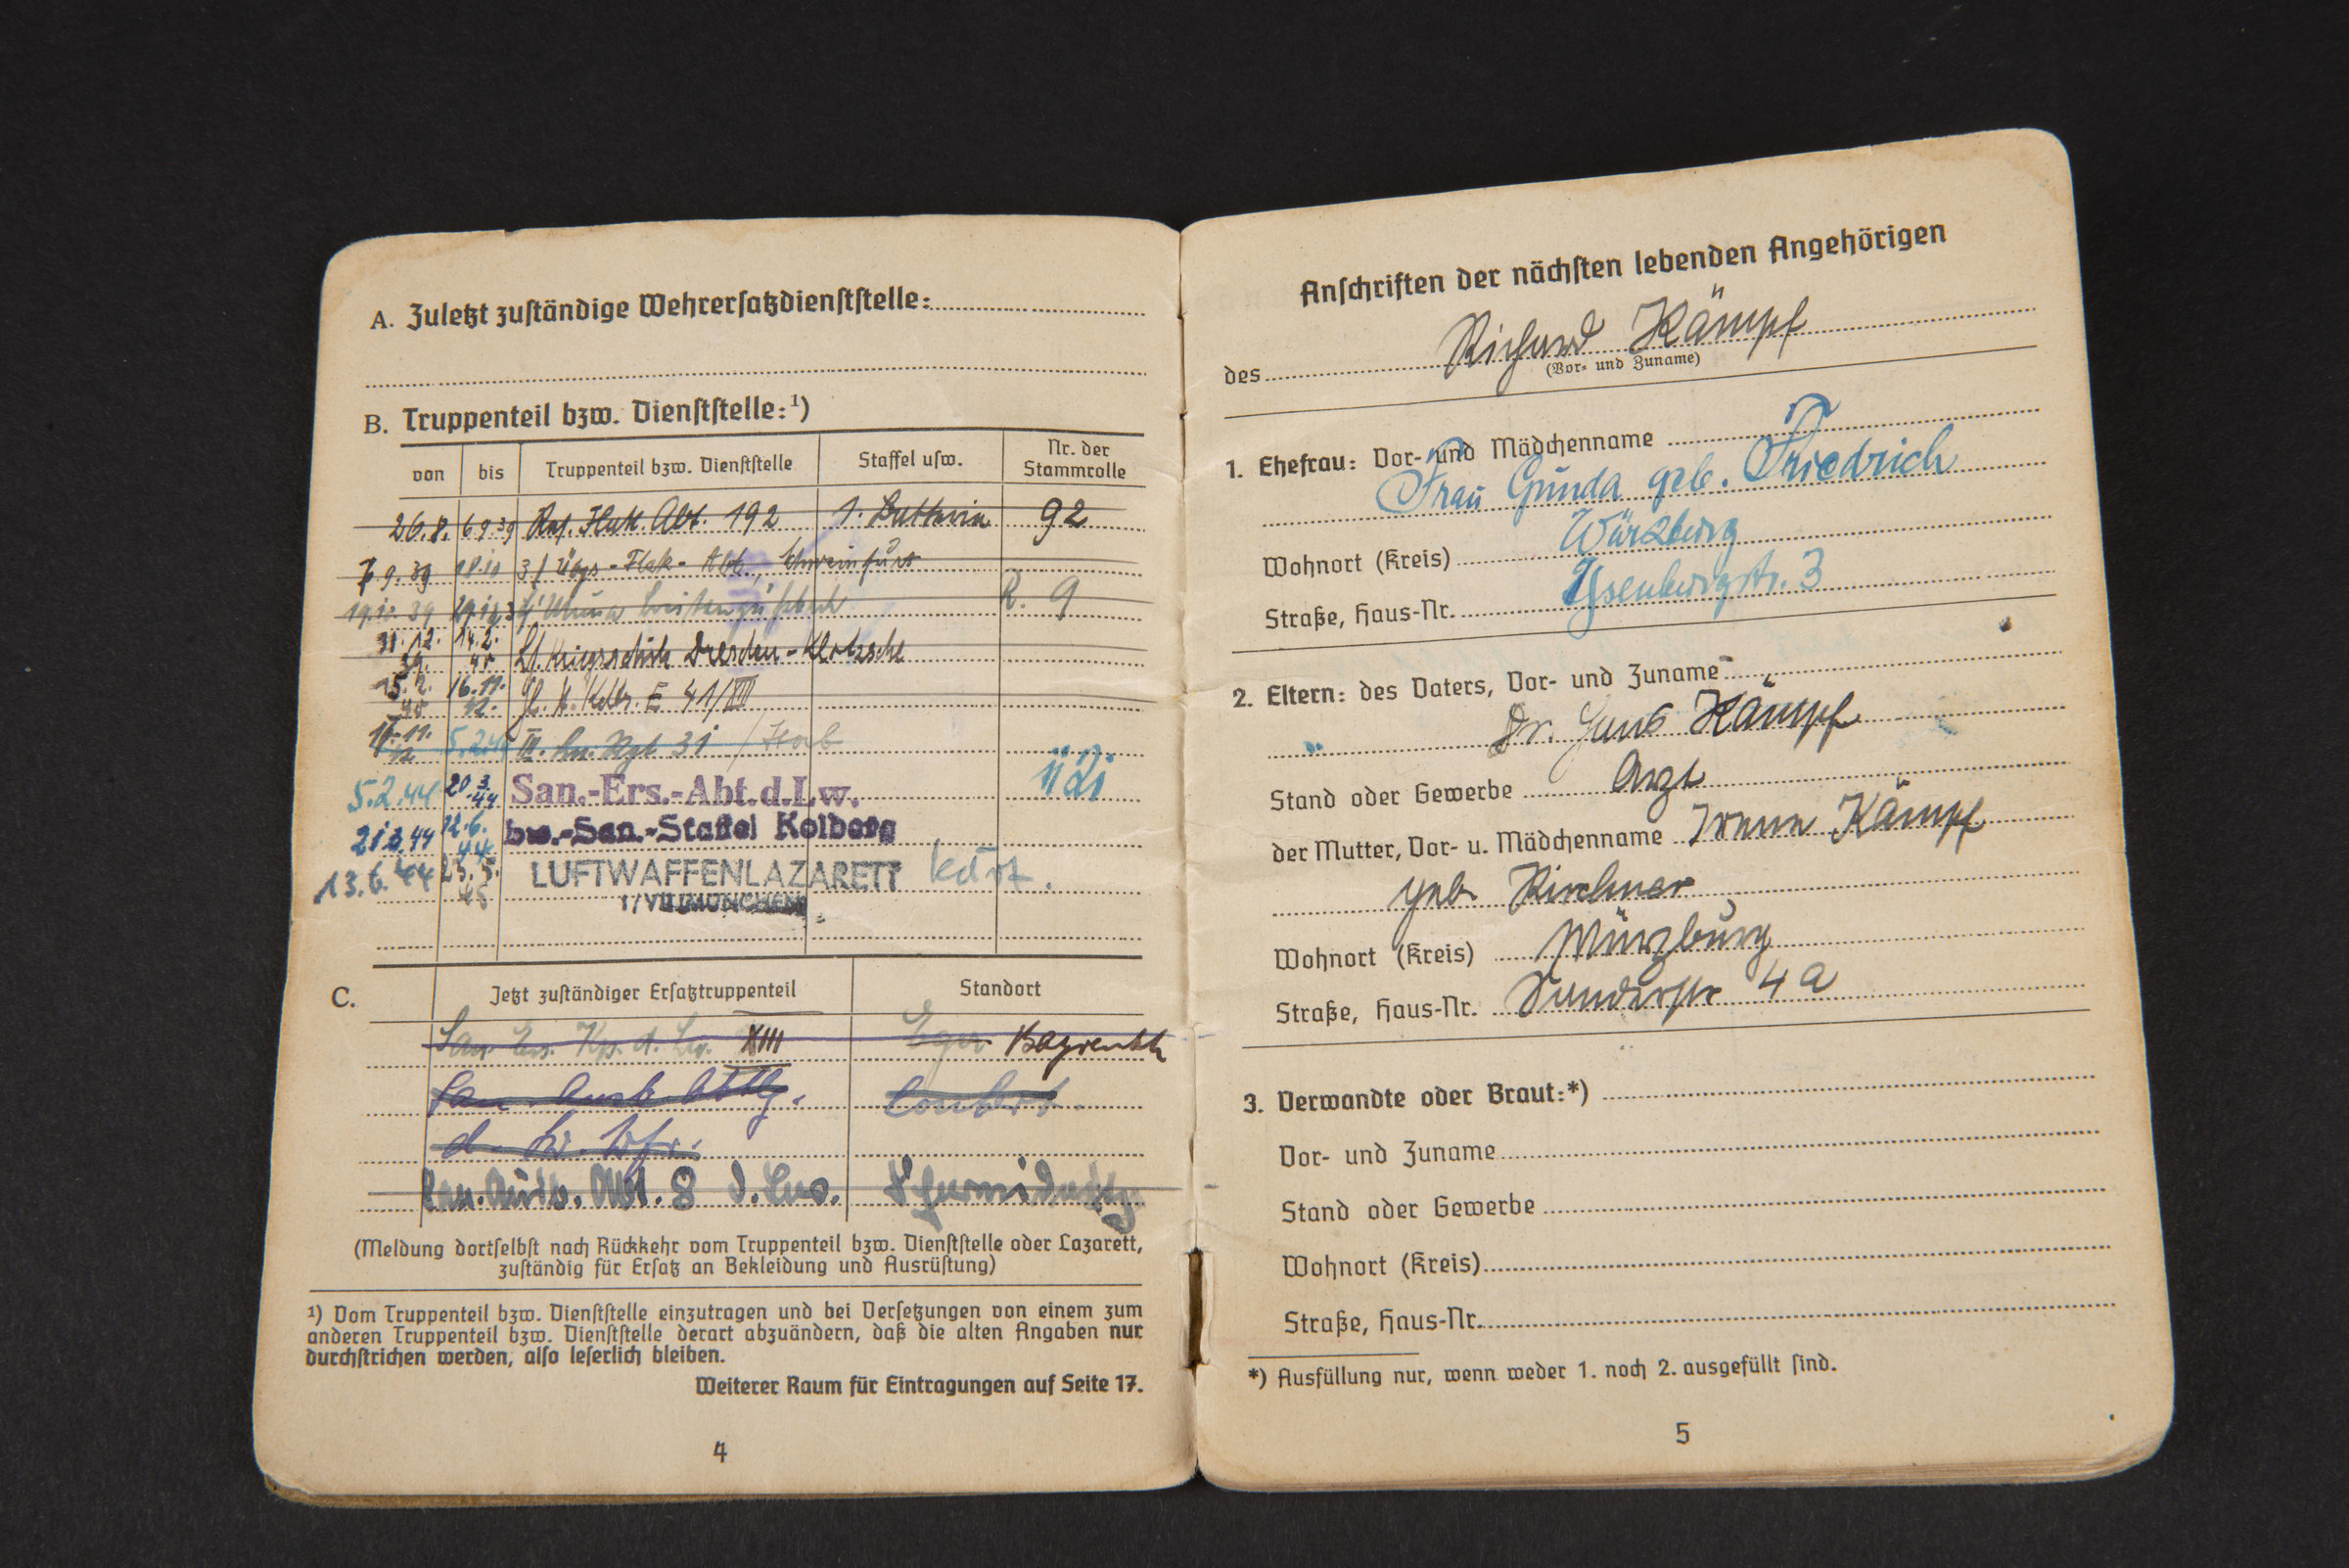 A. Zuletzt zuständige Wehrersatzdienststelle:
B. Truppenteil bzw. Dienststelle:¹)
von bis Truppenteil bzw. Dienststelle Staffel usw. Nr. der Stammrolle
26.8. 6 9 39 Res. Flak Abt. 192 1. Batterie 92
7 9. 39 18.10 3/ Übgs-Flak-Abt., Schweinfurt
19.10 39 R. 9
31.12. 39. 14.2. 40 Lf. Kriegsschule Dresden-Klotzsche
15.2. 40 16.11. 42. E 41/XIII
17.11. 42 5.2.44 III. Rgt. 31
5.2.44 20.3.44 San.-Ers.-Abt.d.Lw.
21.3.44 12.6. 44 bw.-San.-Staffel Kolberg
13.6.44 23.3. 45 LUFTWAFFENLAZARETT
1/VII MÜNCHEN
C. Jetzt zuständiger Ersatztruppenteil Standort
San. Ers. d. Lw. XIII Eger Bayreuth
San. Abt. 8 d. Luw.
(Meldung dortselbst nach Rückkehr vom Truppenteil bzw. Dienststelle oder Lazarett,
zuständig für Ersatz an Bekleidung und Ausrüstung)
¹) Vom Truppenteil bzw. Dienststelle einzutragen und bei Versetzungen von einem zum
anderen Truppenteil bzw. Dienststelle derart abzuändern, daß die alten Angaben nur
durchstrichen werden, also leserlich bleiben.
Weiterer Raum für Eintragungen auf Seite 17.
4
Anschriften der nächsten lebenden Angehörigen
des Richard Kämpf
(Vor- und Zuname)
1. Ehefrau: Vor- und Mädchenname
Frau Gunda geb. Friedrich
Wohnort (Kreis) Würzburg
Straße, Haus-Nr. Ysenburgstr. 3
2. Eltern: des Vaters, Vor- und Zuname
Dr. Hans Kämpf
Stand oder Gewerbe Arzt
der Mutter, Vor- u. Mädchenname Irene Kämpf
geb. Kirchner
Wohnort (Kreis) Würzburg
Straße, Haus-Nr. Sanderstr 4 a
3. Verwandte oder Braut:*)
Vor- und Zuname
Stand oder Gewerbe
Wohnort (Kreis)
Straße, Haus-Nr.
*) Ausfüllung nur, wenn weder 1. noch 2. ausgefüllt sind.
5